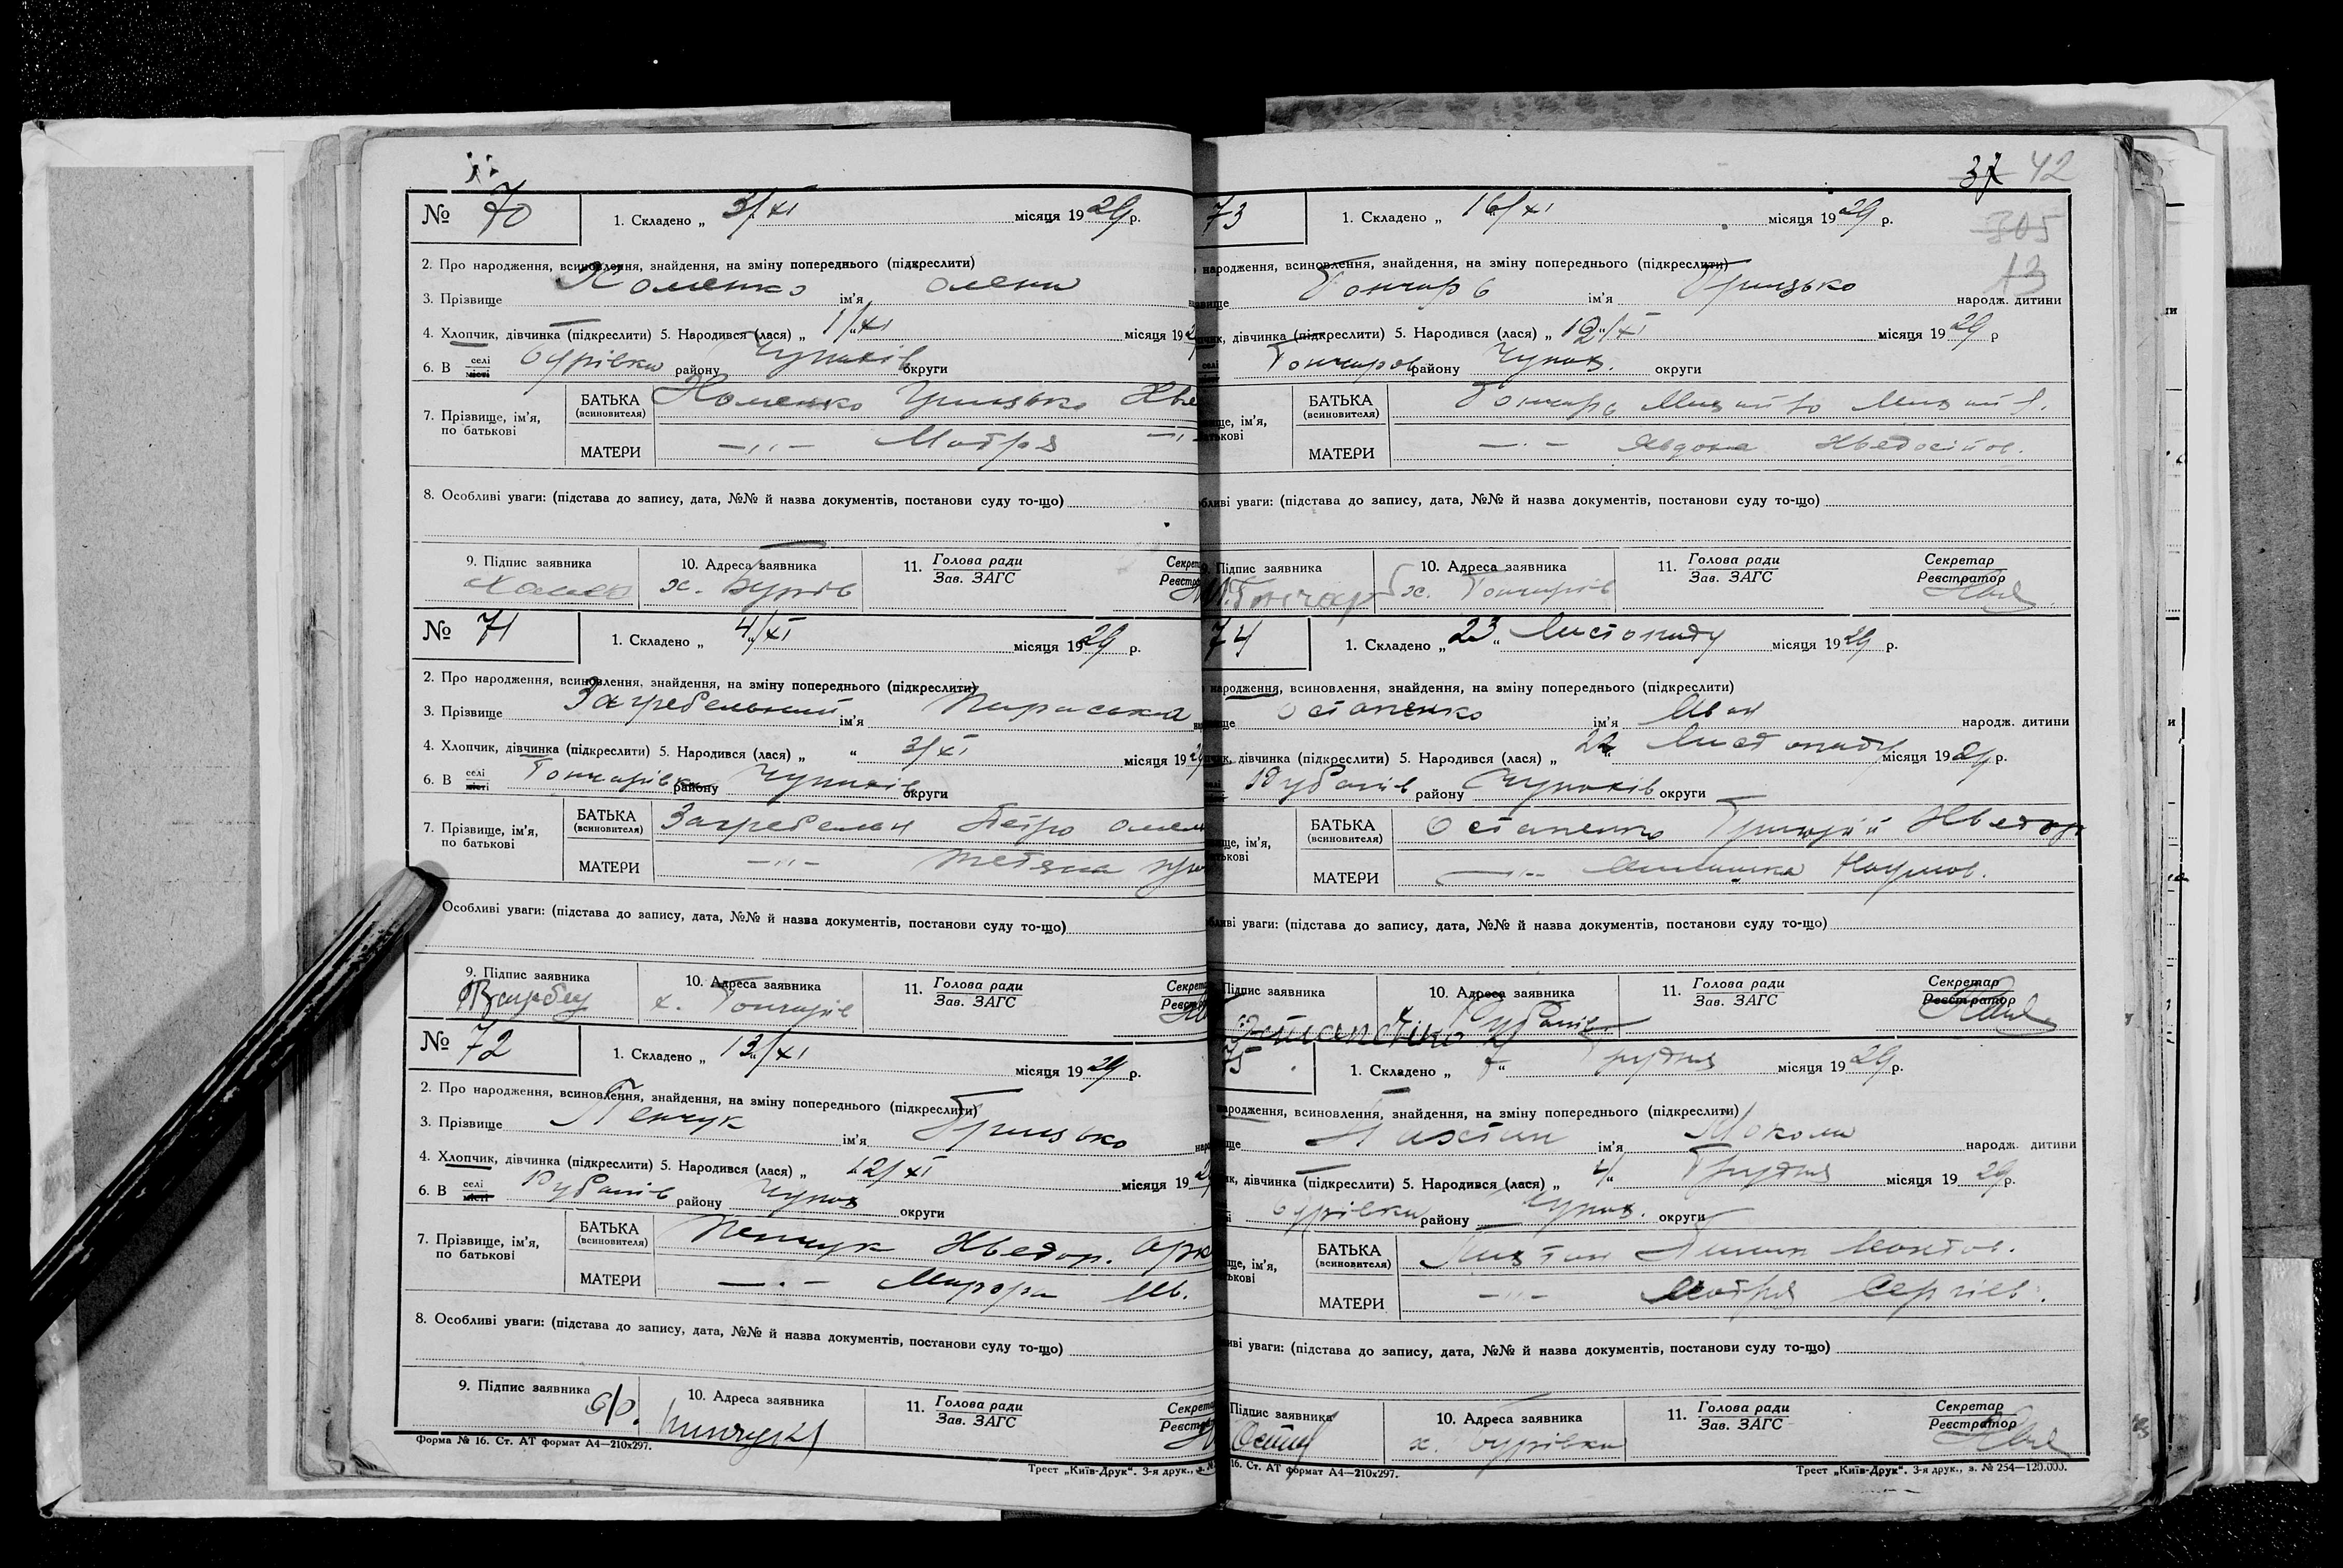 № 70
1. Складено „ 3/XI місяця 1929 р.
2. Про народження, всиновлення, знайдення, на зміну попереднього (підкреслити)
3. Прізвище Хоменко ім'я Олени
4. Хлопчик, дівчинка (підкреслити) 5. Народився (лася) „ 1/XI місяця 192
6. В селі місті Бурівка району Чупахів округи
7. Прізвище, ім'я, по батькові
БАТЬКА (всиновителя) Хоменко Грицько Хве
МАТЕРИ —„— Мотря —„
8. Особливі уваги: (підстава до запису, дата, №№ й назва документів, постанови суду то-що)
9. Підпис заявника 10. Адреса заявника 11. Голова ради Зав. ЗАГС Секрет Реєстр
х. Бурів
№ 71
1. Складено „ 4/XI місяця 1929 р.
2. Про народження, всиновлення, знайдення, на зміну попереднього (підкреслити)
3. Прізвище Загребельний ім'я Параска
4. Хлопчик, дівчинка (підкреслити) 5. Народився (лася) „ “ 3/XI місяця 192
6. В селі місті Гончарівка району Чупахів округи
7. Прізвище, ім'я, по батькові
БАТЬКА (всиновителя) Загребельн Петро Омел
МАТЕРИ —„— Тетяна
Особливі уваги: (підстава до запису, дата, №№ й назва документів, постанови суду то-що)
9. Підпис заявника 10. Адреса заявника 11. Голова ради Зав. ЗАГС Секрет Реєстр
х. Гончарів
№ 72
1. Складено „ 13/XI місяця 1929 р.
2. Про народження, всиновлення, знайдення, на зміну попереднього (підкреслити)
3. Прізвище Пенчук ім'я Грицько
4. Хлопчик, дівчинка (підкреслити) 5. Народився (лася) „ 12/XI місяця 192
6. В селі місті Рубанів району Чупах округи
7. Прізвище, ім'я, по батькові
БАТЬКА (всиновителя) Пенчук Хведор.
МАТЕРИ —„— Ів.
8. Особливі уваги: (підстава до запису, дата, №№ й назва документів, постанови суду то-що)
9. Підпис заявника 10. Адреса заявника 11. Голова ради Зав. ЗАГС Секрет Реєстр
Форма № 16. Ст. АТ формат А4—210х297.
Трест „Київ-Друк“. 3-я друк., з. №
37 42
305
13
73
1. Складено „ 16/XI місяця 1929 р.
народження, всиновлення, знайдення, на зміну попереднього (підкреслити)
Гончарь ім'я Грицько народж. дитини
дівчинка (підкреслити) 5. Народився (лася) „ 12/XI місяця 1929 р
Гончаров району Чупах. округи
БАТЬКА (всиновителя) Гончарь
МАТЕРИ —„— Явдоха Хведосійов.
уваги: (підстава до запису, дата, №№ й назва документів, постанови суду то-що)
Підпис заявника 10. Адреса заявника 11. Голова ради Зав. ЗАГС Секретар Реєстратор
М. Гончар х. Гончарів
74
1. Складено „ 23 “ Листопаду місяця 1929 р.
народження, всиновлення, знайдення, на зміну попереднього (підкреслити)
Остапенко ім'я Іван народж. дитини
дівчинка (підкреслити) 5. Народився (лася) „ 22 “ Листопаду місяця 1929 р.
Рубанів району Чупахів округи
БАТЬКА (всиновителя) Остапенко Григорій Хведор
МАТЕРИ —„— Наумов.
уваги: (підстава до запису, дата, №№ й назва документів, постанови суду то-що)
Підпис заявника 10. Адреса заявника 11. Голова ради Зав. ЗАГС Секретар Реєстратор
75
1. Складено „ “ Грудня місяця 1929 р.
народження, всиновлення, знайдення, на зміну попереднього (підкреслити)
ім'я народж. дитини
дівчинка (підкреслити) 5. Народився (лася) „ 4 “ Грудня місяця 1929 р.
Бурівка району Чупах. округи
БАТЬКА (всиновителя)
МАТЕРИ —„— Мотря Сергіев.
уваги: (підстава до запису, дата, №№ й назва документів, постанови суду то-що)
Підпис заявника 10. Адреса заявника 11. Голова ради Зав. ЗАГС Секретар Реєстратор
х. Бурівка
16. Ст. АТ формат А4—210х297.
Трест „Київ-Друк“. 3-я друк., з. № 254—120.000.